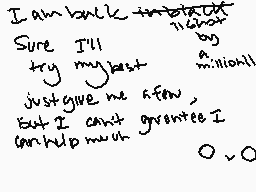 I am back in black
"shot
by
a
million"
Sure I'll
try my best
just give me a few,
but I can't garentee I
can help much
O.O